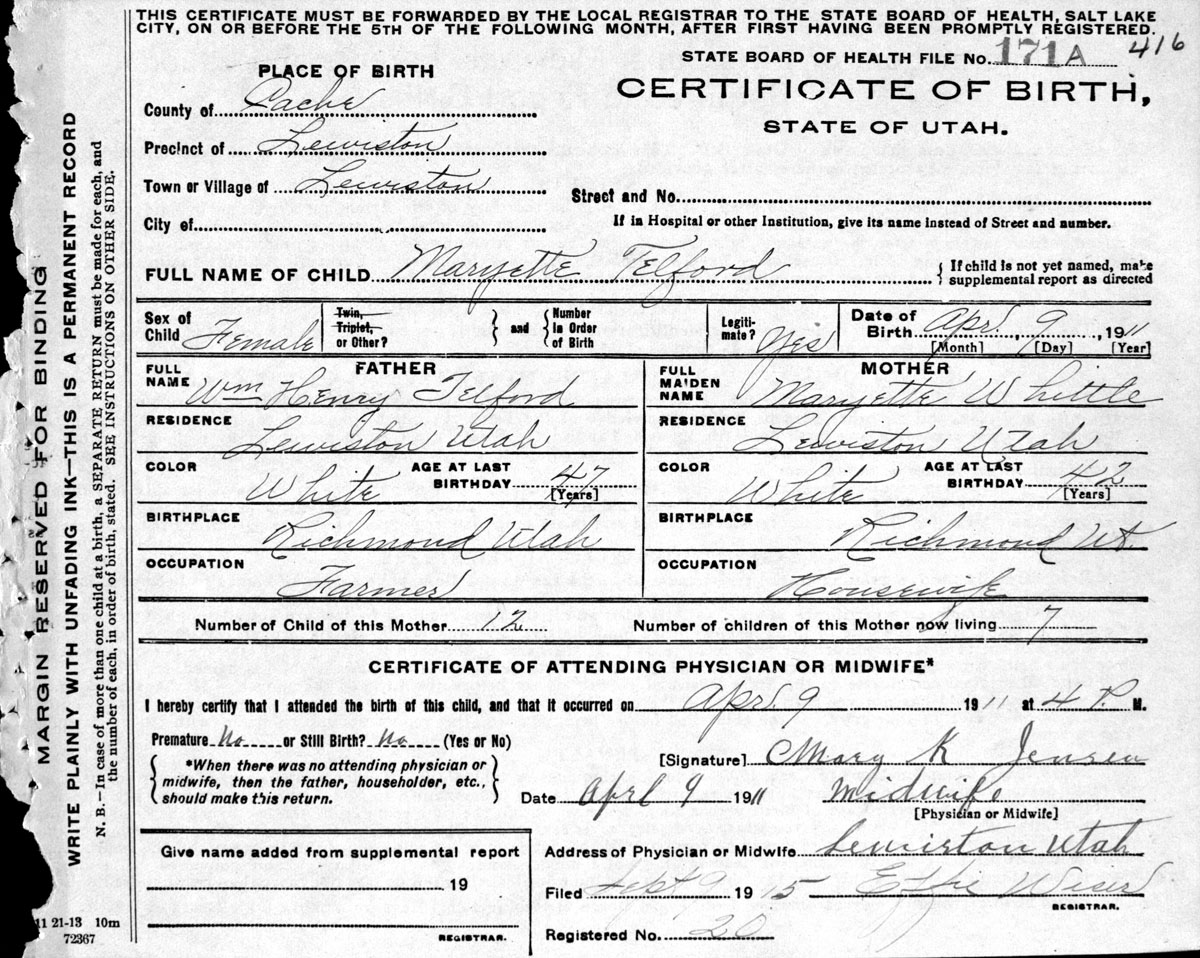 THIS CERTIFICATE MUST BE FORWARDED BY THE LOCAL REGISTRAR TO THE STATE BOARD OF HEALTH, SALT LAKE
CITY, ON OR BEFORE THE 5TH OF THE FOLLOWING MONTH, AFTER FIRST HAVING BEEN PROMPTLY REGISTERED.
STATE BOARD OF HEALTH FILE No. 171 A 416
PLACE OF BIRTH
CERTIFICATE OF BIRTH,
STATE OF UTAH.
County of Cache
Precinct of Lewiston
Town or Village of Lewiston
Street and No.
City of
If in Hospital or other Institution, give its name instead of Street and number.
FULL NAME OF CHILD Maryette Telford { If child is not yet named, make
supplemental report as directed
Sex of Child Female
Twin, Triplet, or Other? } and { Number in Order of Birth
Legiti-mate? Yes
Date of Birth Apr. 9, 1911
[Month] [Day] [Year]
FATHER
FULL NAME Wm Henry Telford
RESIDENCE Lewiston Utah
COLOR White AGE AT LAST BIRTHDAY 47 [Years]
BIRTHPLACE Richmond Utah
OCCUPATION Farmer
MOTHER
FULL MAIDEN NAME Maryette Whittle
RESIDENCE Lewiston Utah
COLOR White AGE AT LAST BIRTHDAY 42 [Years]
BIRTHPLACE Richmond Ut.
OCCUPATION Housewife
Number of Child of this Mother 12 Number of children of this Mother now living 7
CERTIFICATE OF ATTENDING PHYSICIAN OR MIDWIFE*
I hereby certify that I attended the birth of this child, and that it occurred on Apr. 9 1911 at 4 P. M.
Premature No or Still Birth? No (Yes or No)
{ *When there was no attending physician or
midwife, then the father, householder, etc.,
should make this return. }
[Signature] Mary K Jensen
Date Aprl 9 1911 Midwife
[Physician or Midwife]
Address of Physician or Midwife Lewiston Utah
Filed Sept 9 1915 Effie Wiser
REGISTRAR.
Registered No. 20
Give name added from supplemental report
19
REGISTRAR.
MARGIN RESERVED FOR BINDING
WRITE PLAINLY WITH UNFADING INK—THIS IS A PERMANENT RECORD
N. B.—In case of more than one child at a birth, a SEPARATE RETURN must be made for each, and
the number of each, in order of birth, stated. SEE INSTRUCTIONS ON OTHER SIDE.
11 21-13 10m
72367